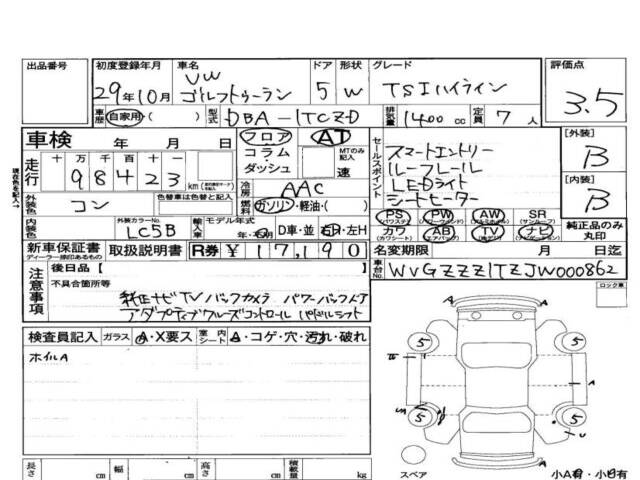 出品番号 初度登録年月 車名 ドア 形状 グレード 評価点
29年10月 VW ゴルフトゥーラン 5 W TSIハイライン 3.5
車歴 自家用・( ) 型式 DBA-1TCZD 排気量 1400 cc 定員 7 人
車検 年 月 日 フロア AT
コラム・ダッシュ MTのみ記入 速
走行 十 万 千 百 十 一
98423 km
冷房 AAC
外装色 コン 色替車は色替と記入 燃料 ガソリン・軽油・( )
内装色 外装カラーNo. LC5B 輸入車 モデル年式 年・D車・並 右H・左H
現在色を記入→
セールスポイント
スマートエントリー
ルーフレール
LEDライト
シートヒーター
PS PW AW SR
(パワステ) (パワーウィンド) (アルミホイル) (サンルーフ)
カワ AB TV ナビ
(カワシート) (エアバック) (テレビ) (ナビゲーション)
[外装]
B
[内装]
B
純正品のみ丸印
新車保証書 取扱説明書 R券 ¥17,190
ディーラー捺印あるもの
名変期限 月 日迄
車台No. WVGZZZ1TZJW000862
注意事項 後日品[ ]
不具合箇所等
純正ナビ TV バックカメラ パワーバックドア
アダプティブクルーズコントロール パドルシフト
ロック車
検査員記入 ガラス A・X要ス 室内シート A・コゲ・穴・汚れ・破れ
ホイルA
5 5
A
5 5
A
スペア 小A有・小B有
長さ cm 幅 cm 高さ cm 積載量 kg